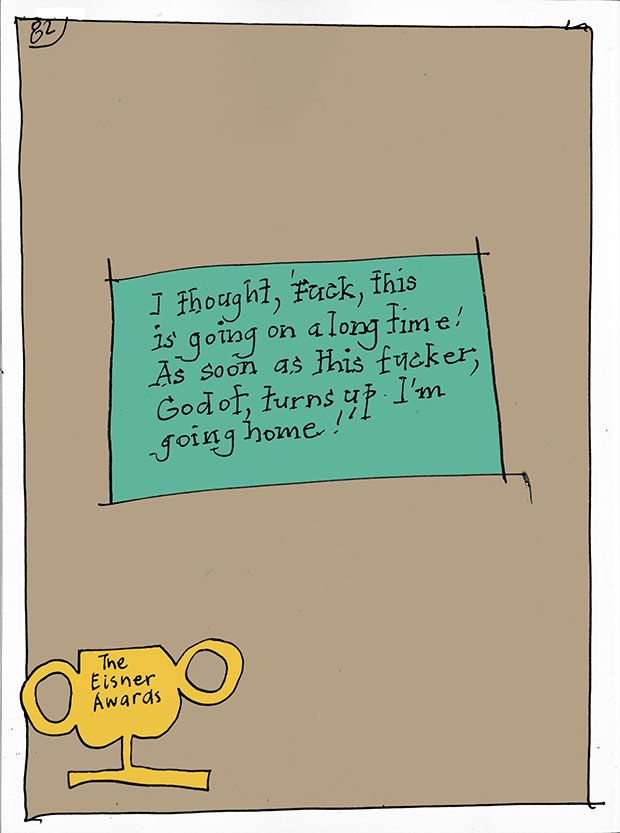 82
I thought, 'Fuck, this
is going on a long time!
As soon as this fucker,
Godot, turns up I'm
going home!''
The
Eisner
Awards